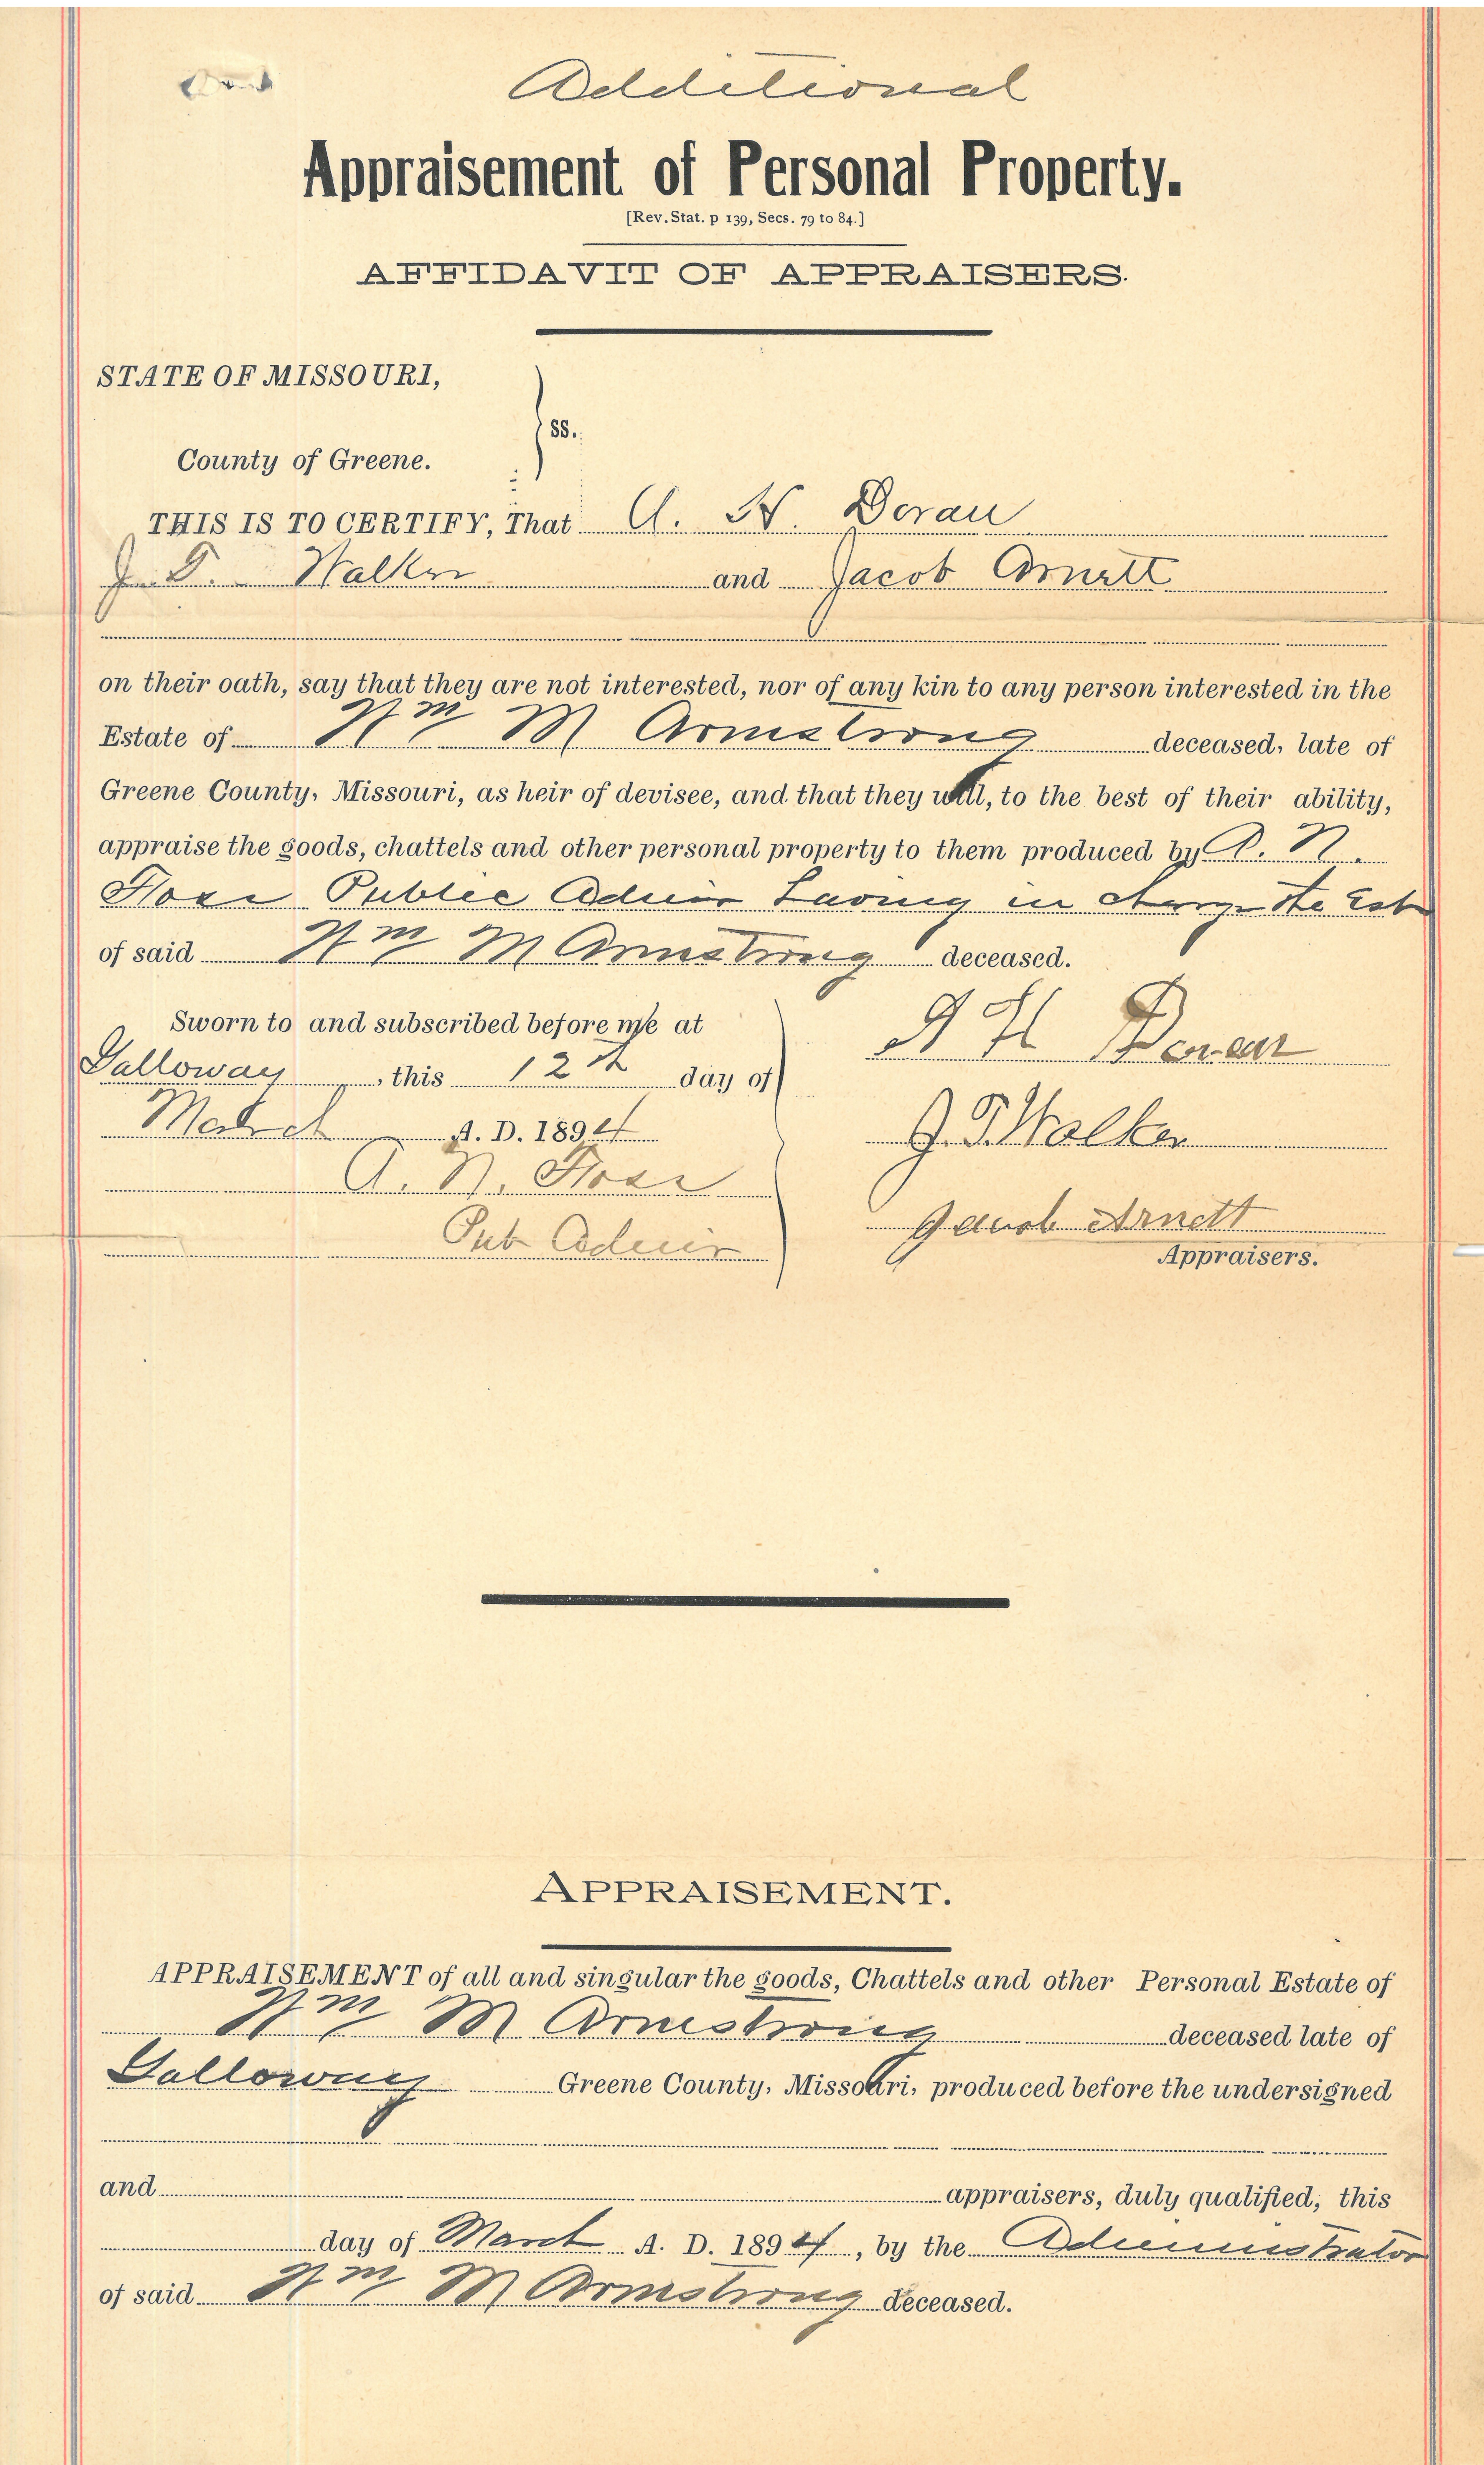 Additional
Appraisement of Personal Property.
[Rev. Stat. p 139, Secs. 79 to 84.]
AFFIDAVIT OF APPRAISERS.
STATE OF MISSOURI,
ss.
County of Greene.
THIS IS TO CERTIFY, That A. H. Doran
J. T. Walker and Jacob Arnett
on their oath, say that they are not interested, nor of any kin to any person interested in the
Estate of Wm M Armstrong deceased, late of
Greene County, Missouri, as heir of devisee, and that they will, to the best of their ability,
appraise the goods, chattels and other personal property to them produced by A. N.
Public Admr having in charge the Est
of said Wm M Armstrong deceased.
Sworn to and subscribed before me at
Galloway, this 12th day of
March A. D. 1894
A. N.
Pub Admr
A H Doran
J. T. Walker
Jacob Arnett
Appraisers.
APPRAISEMENT.
APPRAISEMENT of all and singular the goods, Chattels and other Personal Estate of
Wm M Armstrong deceased late of
Galloway Greene County, Missouri, produced before the undersigned
and appraisers, duly qualified, this
day of March A. D. 1894, by the Administrator
of said Wm M Armstrong deceased.